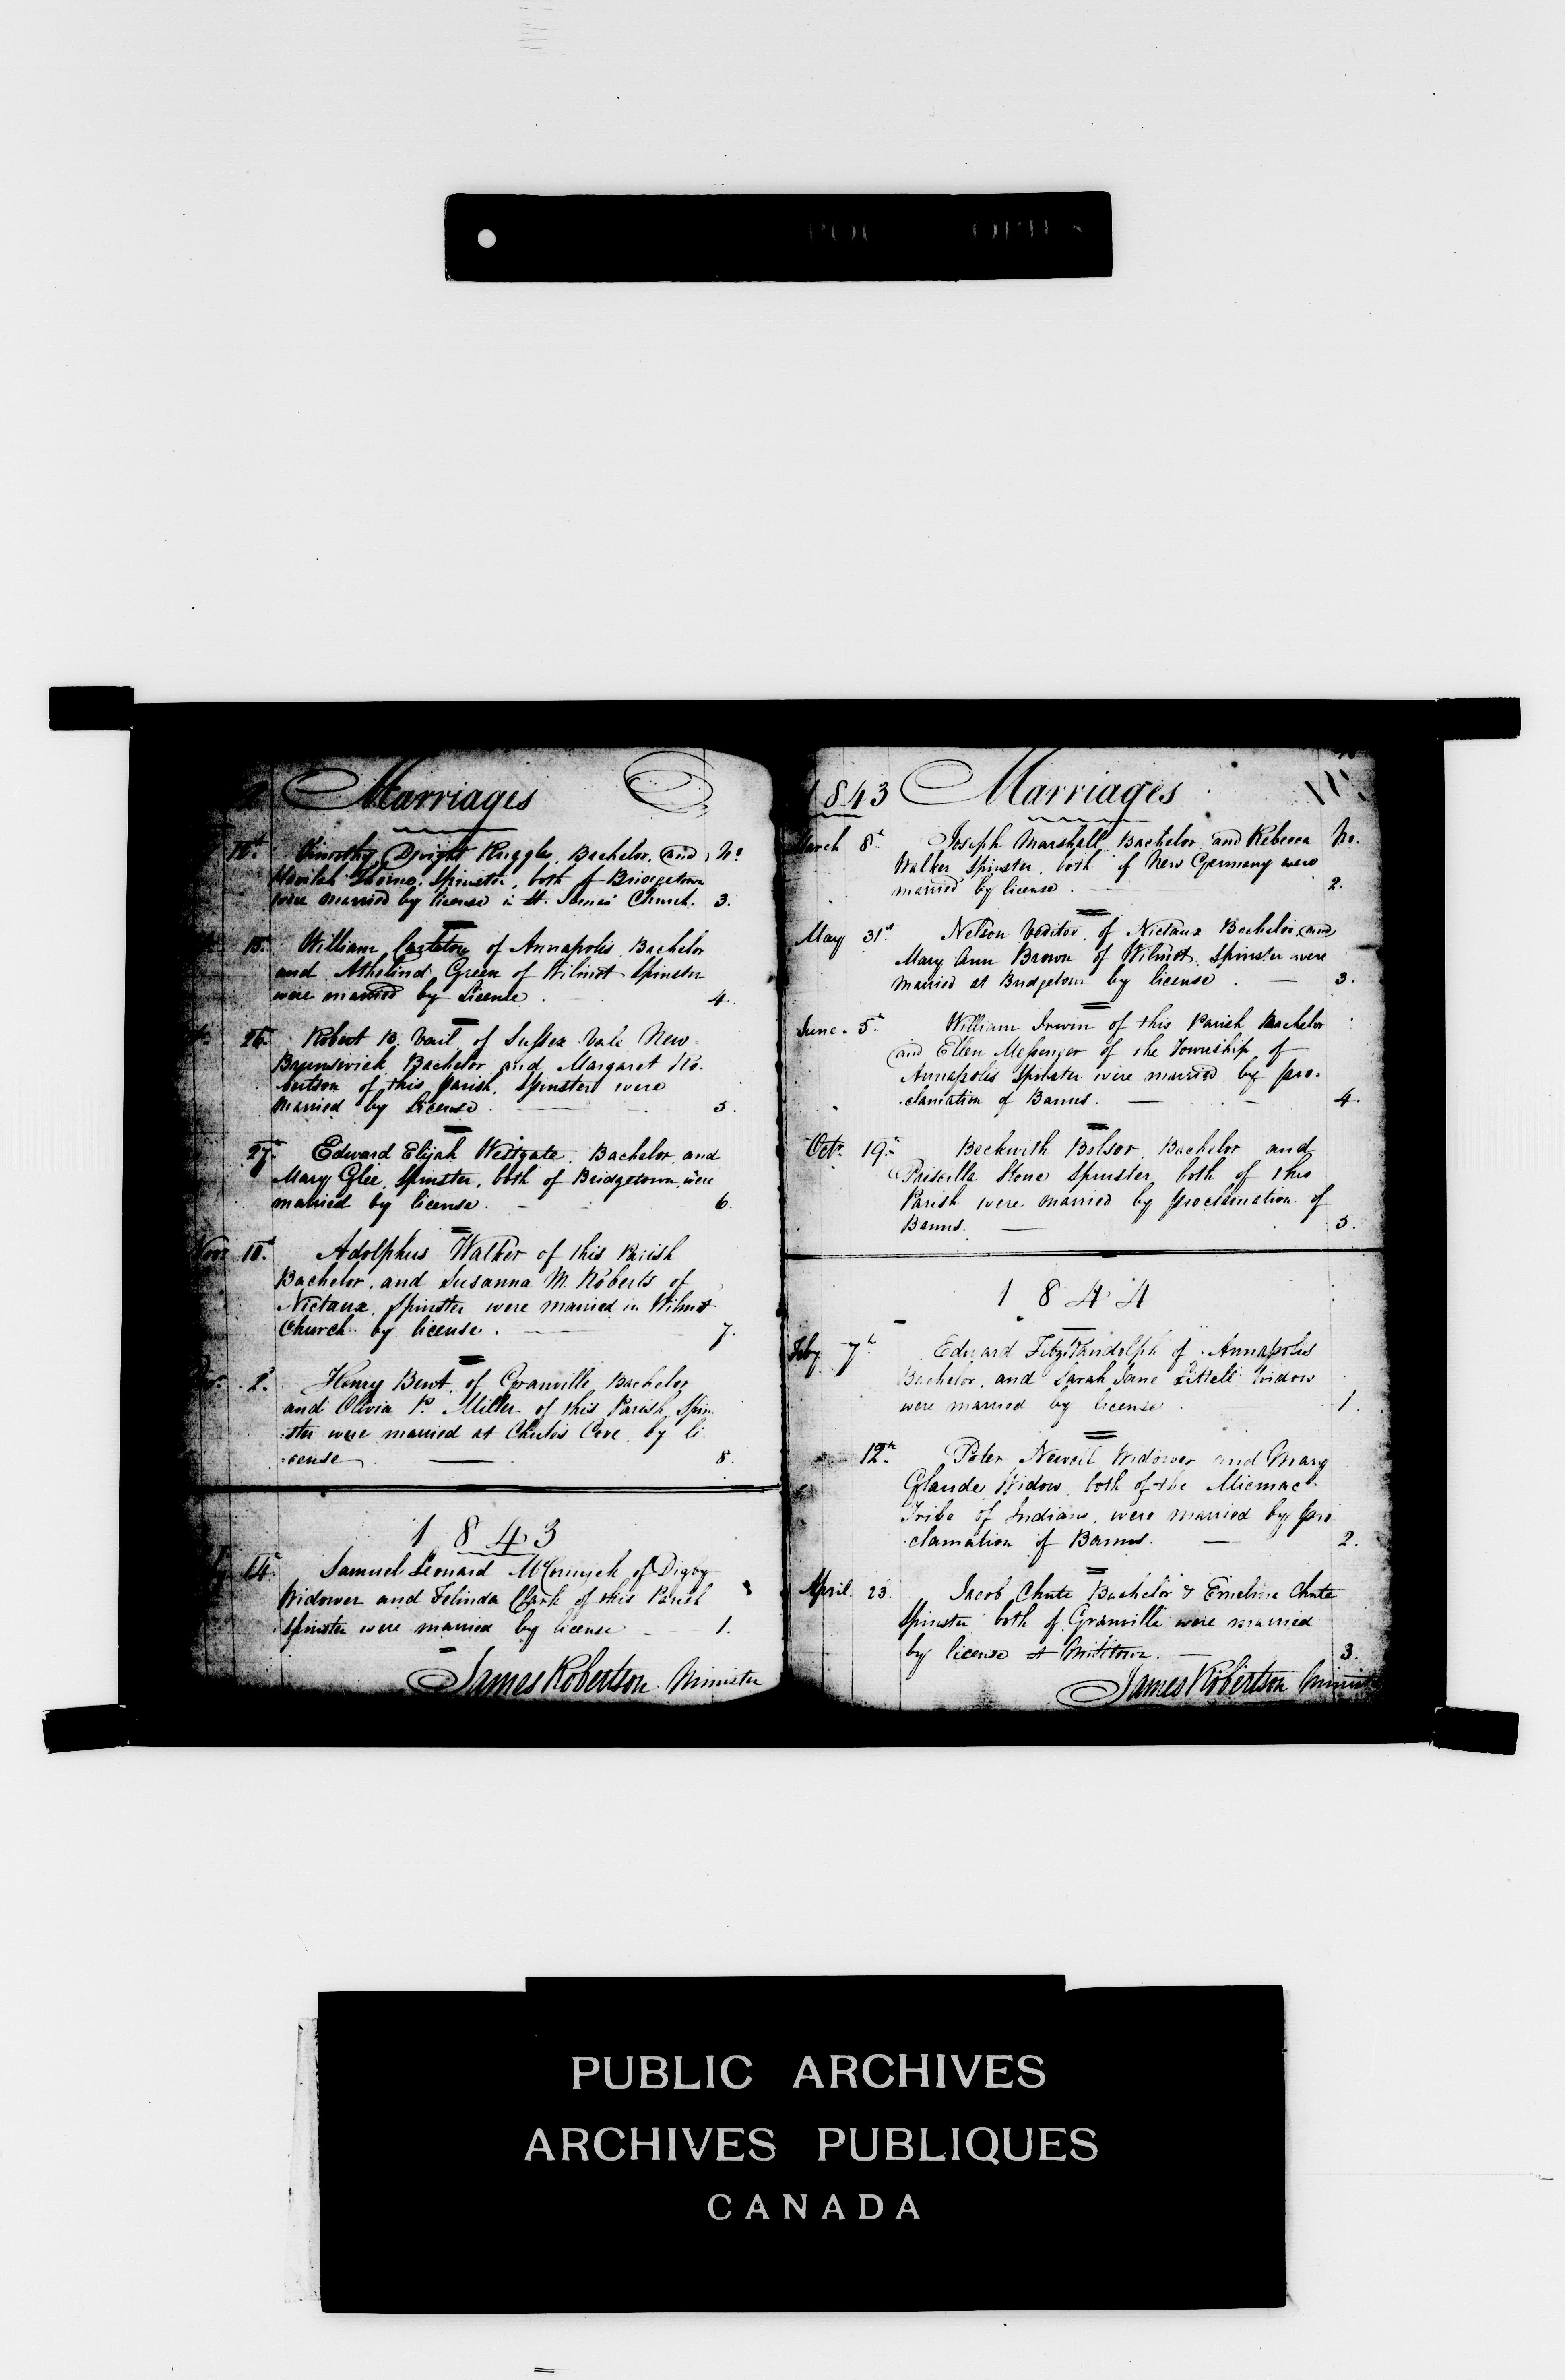 Marriages
Timothy Dwight Ruggles, Bachelor, and No.
Spinster, both of Bridgetown
were married by license in St. James' Church. 3.
15. William of Annapolis Bachelor
and Green of Wilmot Spinster
were married by License. 4.
26. Robert B. Vail of Sussex Vale New
Brunswick Bachelor and Margaret Ro-
bertson of this Parish, Spinster were
married by License. 5.
27. Edward Elijah Westgate, Bachelor and
Mary Glee, Spinster, both of Bridgetown, were
married by license. 6.
Novr 10. Adolphus Walker of this Parish
Bachelor, and Susanna M. Roberts of
Nictaux, Spinster were married in Wilmot
Church by license. 7.
2. Henry Bent, of Granville, Bachelor
and Olivia P. Miller of this Parish Spin-
ster were married at Chute's Cove, by li-
cense 8.
1843
14. Samuel Leonard McCormick of Digby
Widower and Clark of this Parish
Spinster were married by license 1.
James Robertson Minister
1843 Marriages
March 8th Joseph Marshall, Bachelor, and Rebecca No.
Walker Spinster, both of New Germany were
married by license. 2.
May 31st Nelson of Nictaux Bachelor, and
Mary Ann Brown of Wilmot, Spinster were
married at Bridgetown by license. 3.
June 5th William Irwin of this Parish Bachelor
and Ellen Messenger of the Township of
Annapolis Spinster were married by pro-
clamation of Banns. 4.
Octr. 19th Beckwith Bolsor, Bachelor and
Priscilla Stone Spinster both of this
Parish were married by proclamation of
Banns. 5.
1844
Feby 7th Edward FitzRandolph of Annapolis
Bachelor, and Sarah Jane Widow
were married by license. 1.
12th Peter Newell Widower and Mary
Glaude Widow, both of the Micmac
Tribe of Indians, were married by pro
clamation of Banns. 2.
April 23. Jacob Chute Bachelor & Emeline Chute
Spinster both of Granville were married
by license at 3.
James Robertson Minister
PUBLIC ARCHIVES
ARCHIVES PUBLIQUES
CANADA